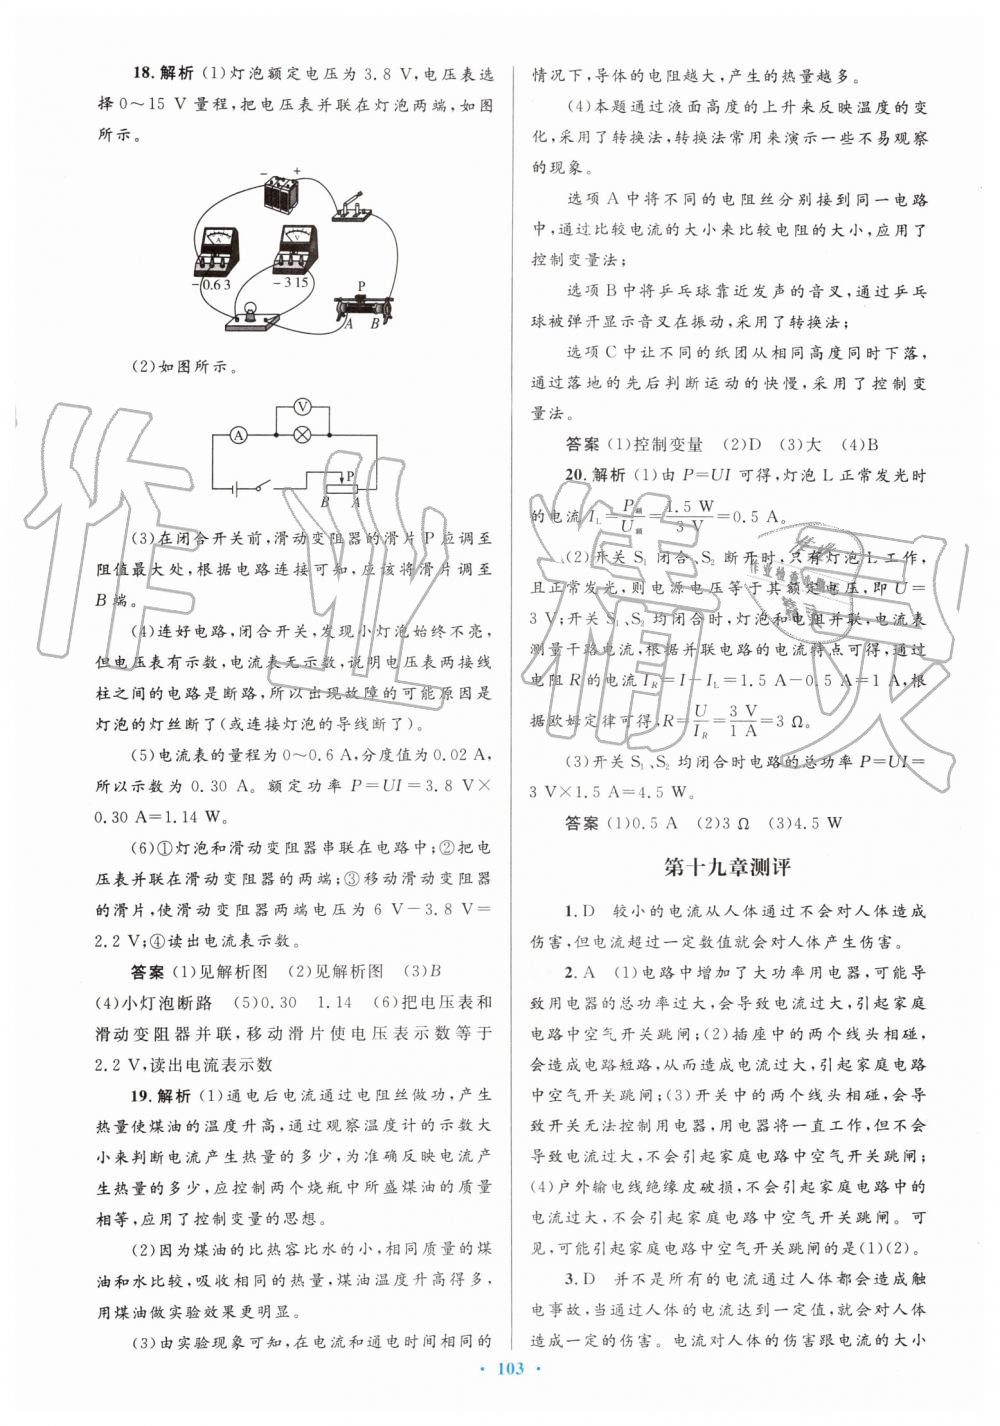 18.解析 (1)灯泡额定电压为 3.8 V,电压表选
择 0～15 V 量程,把电压表并联在灯泡两端,如图
所示。
- +
A
V
- 0.6 3
- 3 15
P
A B
(2)如图所示。
V
A
P
B A
(3)在闭合开关前,滑动变阻器的滑片 P 应调至
阻值最大处,根据电路连接可知,应该将滑片调至
B 端。
(4)连好电路,闭合开关,发现小灯泡始终不亮,
但电压表有示数,电流表无示数,说明电压表两接线
柱之间的电路是断路,所以出现故障的可能原因是
灯泡的灯丝断了(或连接灯泡的导线断了)。
(5)电流表的量程为 0～0.6 A,分度值为 0.02 A,
所以示数为 0.30 A。额定功率 P=UI=3.8 V×
0.30 A=1.14 W。
(6)①灯泡和滑动变阻器串联在电路中;②把电
压表并联在滑动变阻器的两端;③移动滑动变阻器
的滑片,使滑动变阻器两端电压为 6 V-3.8 V=
2.2 V;④读出电流表示数。
答案 (1)见解析图 (2)见解析图 (3)B
(4)小灯泡断路 (5)0.30 1.14 (6)把电压表和
滑动变阻器并联,移动滑片使电压表示数等于
2.2 V,读出电流表示数
19.解析 (1)通电后电流通过电阻丝做功,产生
热量使煤油的温度升高,通过观察温度计的示数大
小来判断电流产生热量的多少,为准确反映电流产
生热量的多少,应控制两个烧瓶中所盛煤油的质量
相等,应用了控制变量的思想。
(2)因为煤油的比热容比水的小,相同质量的煤
油和水比较,吸收相同的热量,煤油温度升高得多,
用煤油做实验效果更明显。
(3)由实验现象可知,在电流和通电时间相同的
情况下,导体的电阻越大,产生的热量越多。
(4)本题通过液面高度的上升来反映温度的变
化,采用了转换法,转换法常用来演示一些不易观察
的现象。
选项 A 中将不同的电阻丝分别接到同一电路
中,通过比较电流的大小来比较电阻的大小,应用了
控制变量法;
选项 B 中将乒乓球靠近发声的音叉,通过乒乓
球被弹开显示音叉在振动,采用了转换法;
选项 C 中让不同的纸团从相同高度同时下落,
通过落地的先后判断运动的快慢,采用了控制变
量法。
答案 (1)控制变量 (2)D (3)大 (4)B
20.解析 (1)由 P=UI 可得,灯泡 L 正常发光时
的电流 I_L=P额/U额=1.5 W/3 V=0.5 A。
(2)开关 S₁ 闭合、S₂ 断开时,只有灯泡 L 工作,
且正常发光,则电源电压等于其额定电压,即 U=
3 V;开关 S₁、S₂ 均闭合时,灯泡和电阻并联,电流表
测量干路电流,根据并联电路的电流特点可得,通过
电阻 R 的电流 I_R=I-I_L=1.5 A-0.5 A=1 A,根
据欧姆定律可得,R=U/I_R=3 V/1 A=3 Ω。
(3)开关 S₁、S₂ 均闭合时电路的总功率 P=UI=
3 V×1.5 A=4.5 W。
答案 (1)0.5 A (2)3 Ω (3)4.5 W
第十九章测评
1.D 较小的电流从人体通过不会对人体造成
伤害,但电流超过一定数值就会对人体产生伤害。
2.A (1)电路中增加了大功率用电器,可能导
致用电器的总功率过大,会导致电流过大,引起家庭
电路中空气开关跳闸;(2)插座中的两个线头相碰,
会造成电路短路,从而造成电流过大,引起家庭电路
中空气开关跳闸;(3)开关中的两个线头相碰,会导
致开关无法控制用电器,用电器将一直工作,但不会
导致电流过大,不会引起家庭电路中空气开关跳闸;
(4)户外输电线绝缘皮破损,不会引起家庭电路中的
电流过大,不会引起家庭电路中空气开关跳闸。可
见,可能引起家庭电路中空气开关跳闸的是(1)(2)。
3.D 并不是所有的电流通过人体都会造成触
电事故,当通过人体的电流达到一定值,就会对人体
造成一定的伤害。电流对人体的伤害跟电流的大小
· 103 ·
作业精灵